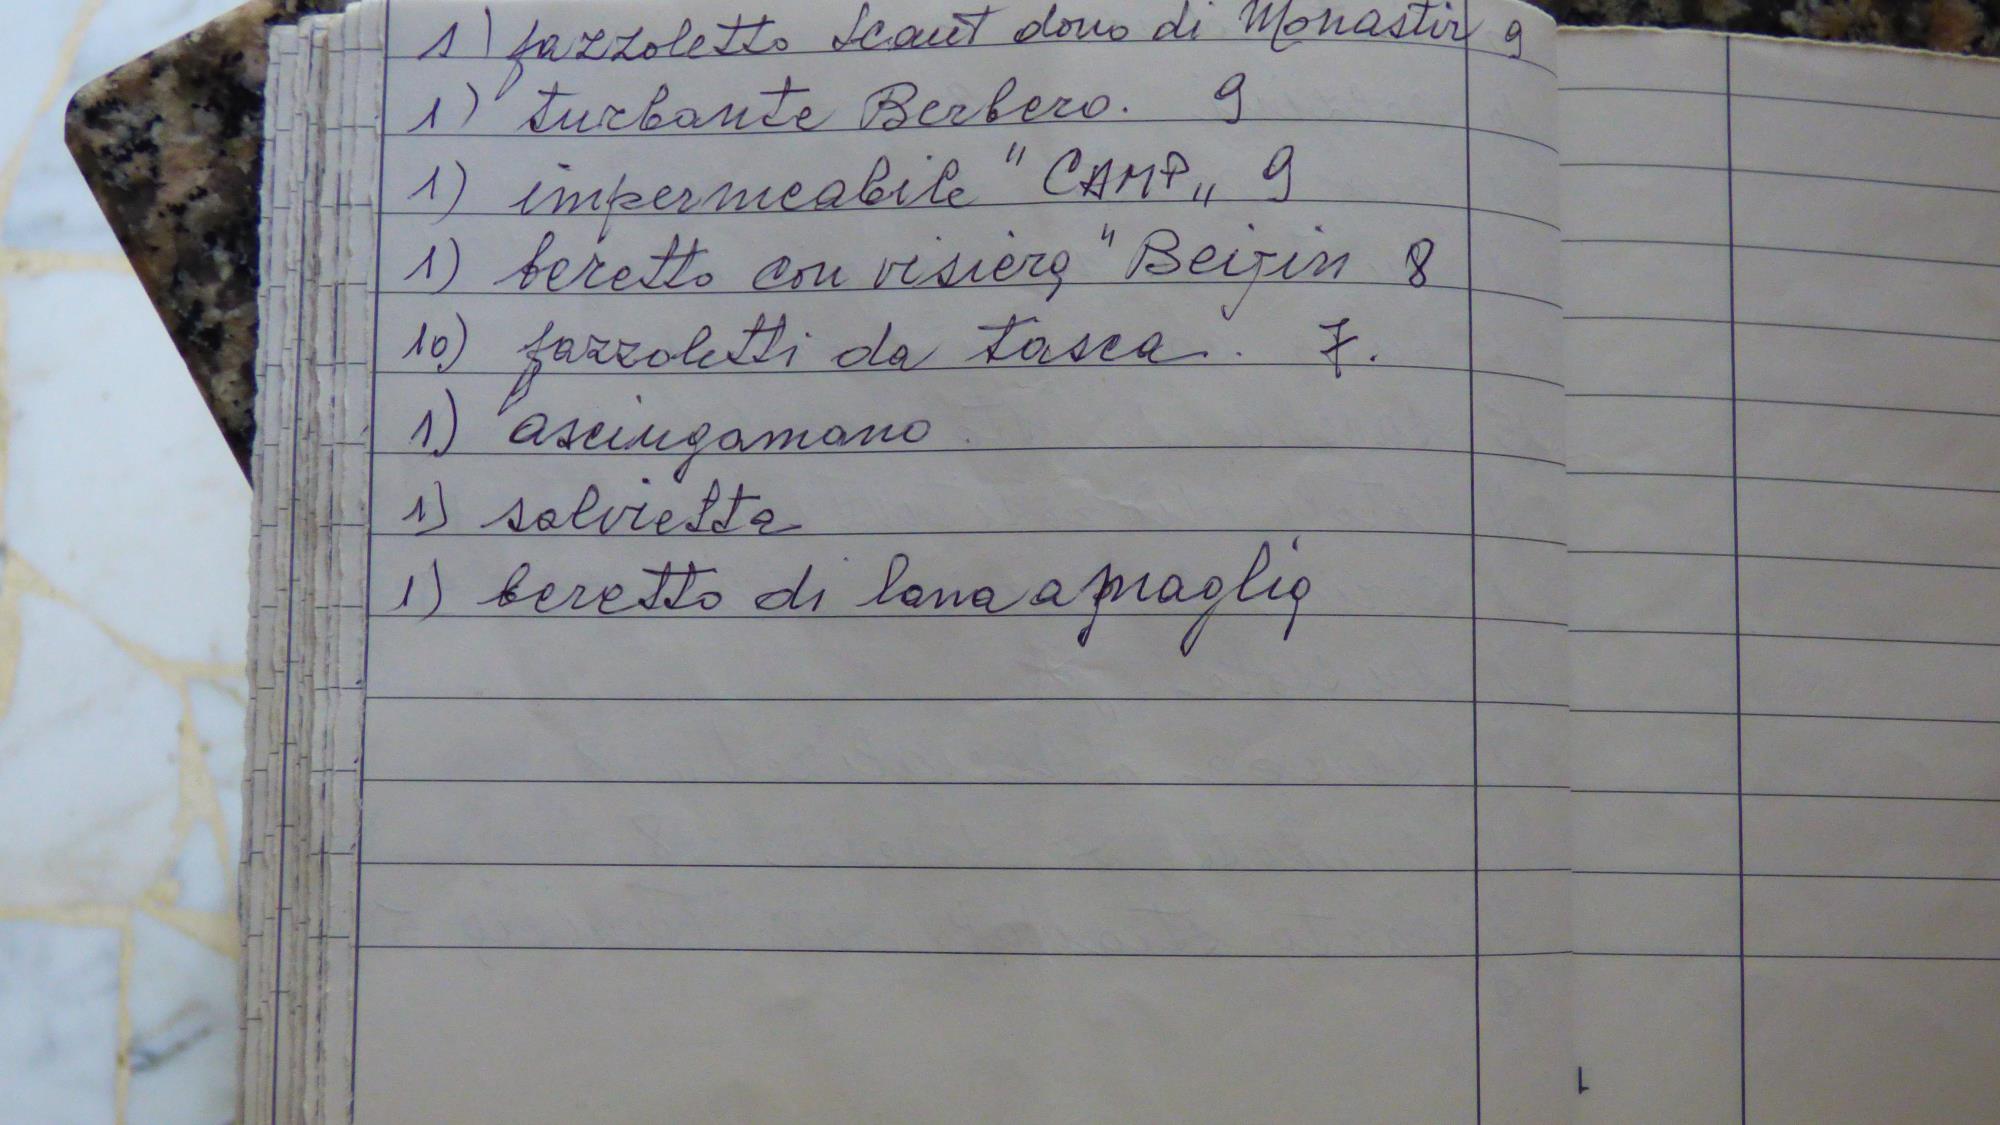 1) fazzoletto scaut dono di Monastir 9
1) turbante Berbero. 9
1) impermeabile "CAMP„ 9
1) beretto con visiera "Beijin 8
10) fazzoletti da tasca. 7.
1) asciugamano
1) salvietta
1) beretto di lana a maglia